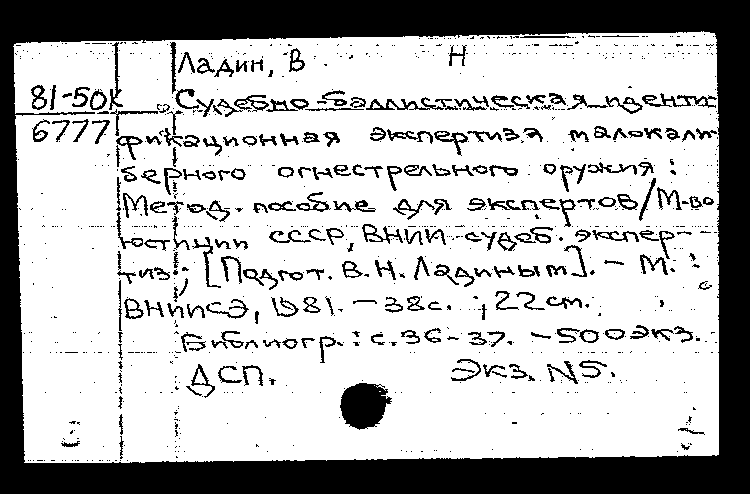 Ладин, В Н
81-50к Судебно-баллистическая иденти-
6777 фикационная экспертиза малокали-
берного огнестрельного оружия :
Метод. пособие для экспертов/М-во
юстиции СССР, ВНИИ судеб. экспер-
тиз; [Подгот. В. Н. Ладиным]. - М. :
ВНИИСЭ, 1981. - 38с. ; 22 см.
Библиогр. : с. 36-37. - 500 экз.
ДСП. Экз. N5.